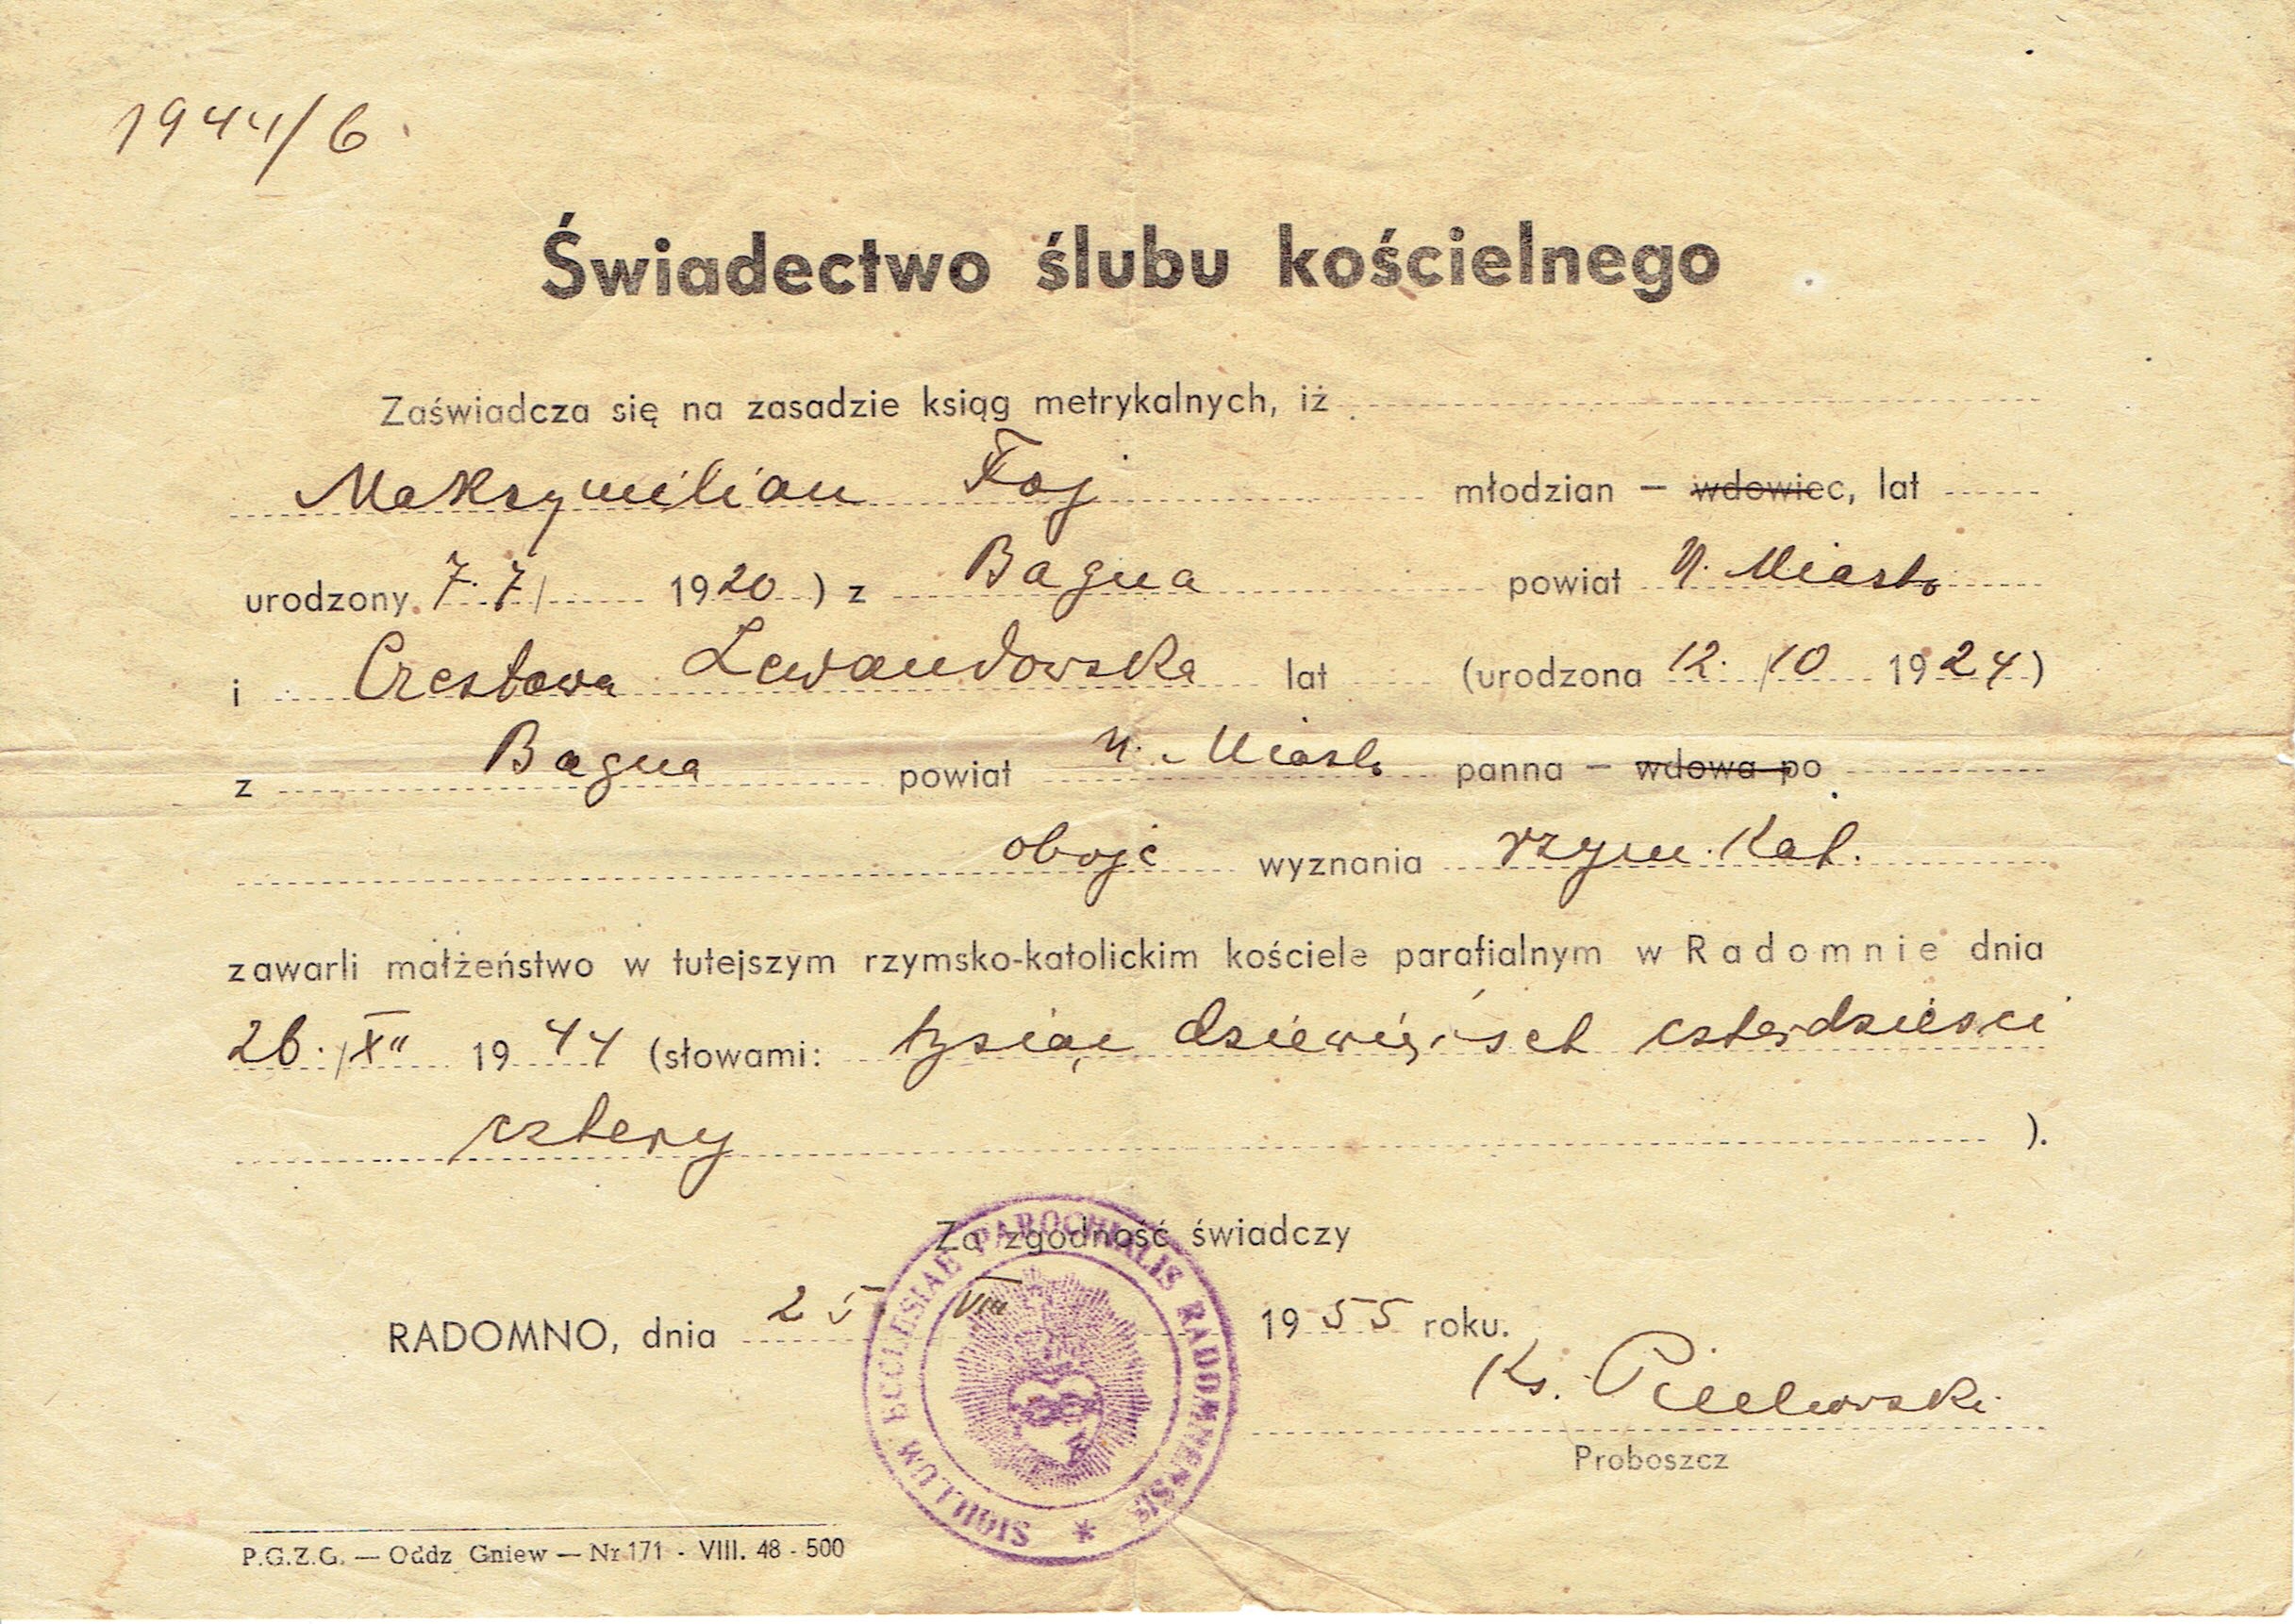 1944/6.
Świadectwo ślubu kościelnego
Zaświadcza się na zasadzie ksiąg metrykalnych, iż
Maksymilian Foj młodzian — wdowiec, lat
urodzony 7.7/ 1920 ) z Bagna powiat N. Miasto
i Czesława Lewandowska lat (urodzona 12./10 1924)
z Bagna powiat N. Miasto panna — wdowa po
oboje wyznania rzym. kat.
zawarli małżeństwo w tutejszym rzymsko-katolickim kościele parafialnym w Radomnie dnia
26./XII 1944 (słowami: tysiąc dziewięćset czterdzieści
cztery ).
Za zgodność świadczy
RADOMNO, dnia 25 VIII 1955 roku.
Ks.
Proboszcz
SIGILLUM ECCLESIAE PAROCHIALIS RADOMNENSIS *
P.G.Z.G. — Oddz Gniew — Nr 171 - VIII. 48 - 500